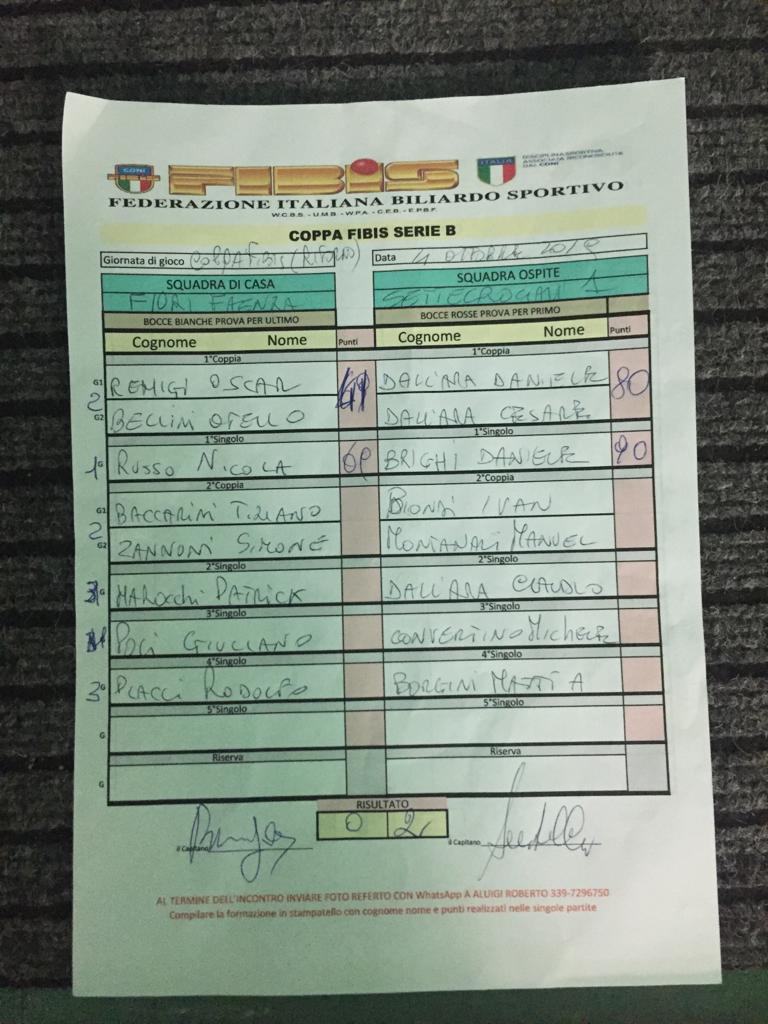 CONI FIBiS ITALIA DISCIPLINA SPORTIVA ASSOCIATA RICONOSCIUTA DAL CONI
FEDERAZIONE ITALIANA BILIARDO SPORTIVO
W.C.B.S. - U.M.B. - W.P.A. - C.E.B. - E.P.B.F.
COPPA FIBIS SERIE B
Giornata di gioco COPPA FIBIS (RITORNO) Data 4 OTTOBRE
SQUADRA DI CASA SQUADRA OSPITE
FIORI FAENZA SETTECROCIARI 1
BOCCE BIANCHE PROVA PER ULTIMO BOCCE ROSSE PROVA PER PRIMO
Cognome Nome Punti Cognome Nome Punti
1°Coppia 1°Coppia
G1 REMIGI OSCAR DALL'ARA DANIELE 80
2
G2 BELLINI OTELLO DALL'ARA CESARE
1°Singolo 1°Singolo
1 G RUSSO NICOLA BRIGHI DANIELE 90
2°Coppia 2°Coppia
G1 BACCARINI TIZIANO BIONDI IVAN
2
G2 ZANNONI SIMONE MONTANARI MANUEL
2°Singolo 2°Singolo
G MAROCCHI PATRICK DALL'ARA CLAUDIO
3°Singolo 3°Singolo
GIULIANO CONVERTINO MICHELE
4°Singolo 4°Singolo
3 G PLACCI RODOLFO BORGINI MATTIA
5°Singolo 5°Singolo
G
Riserva Riserva
G
RISULTATO
0 2
il Capitano il Capitano
AL TERMINE DELL'INCONTRO INVIARE FOTO REFERTO CON WhatsApp A ALUIGI ROBERTO 339-7296750
Compilare la formazione in stampatello con cognome nome e punti realizzati nelle singole partite